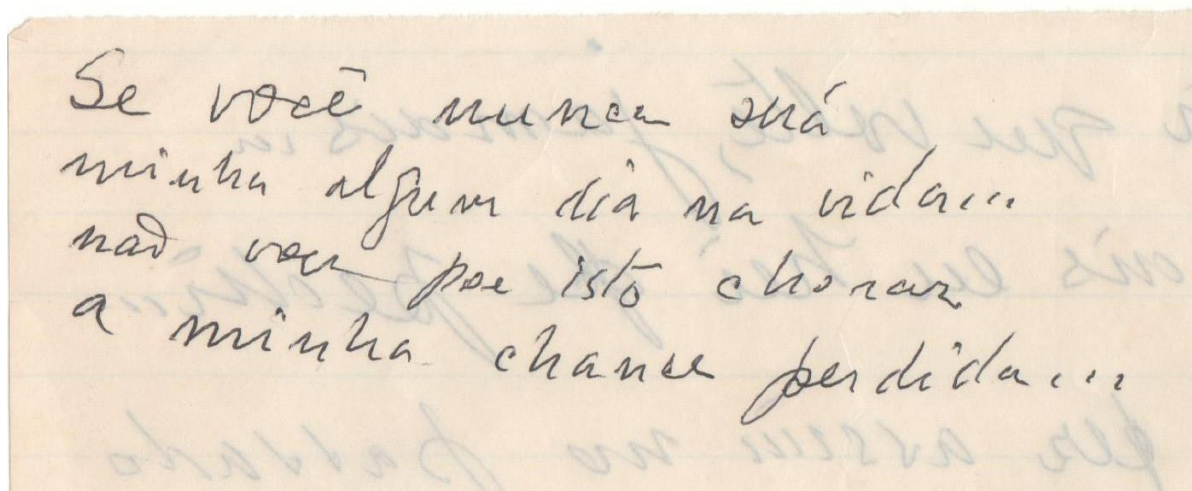 Se você nunca será
minha algum dia na vida...
não vou por isto chorar
a minha chance perdida...